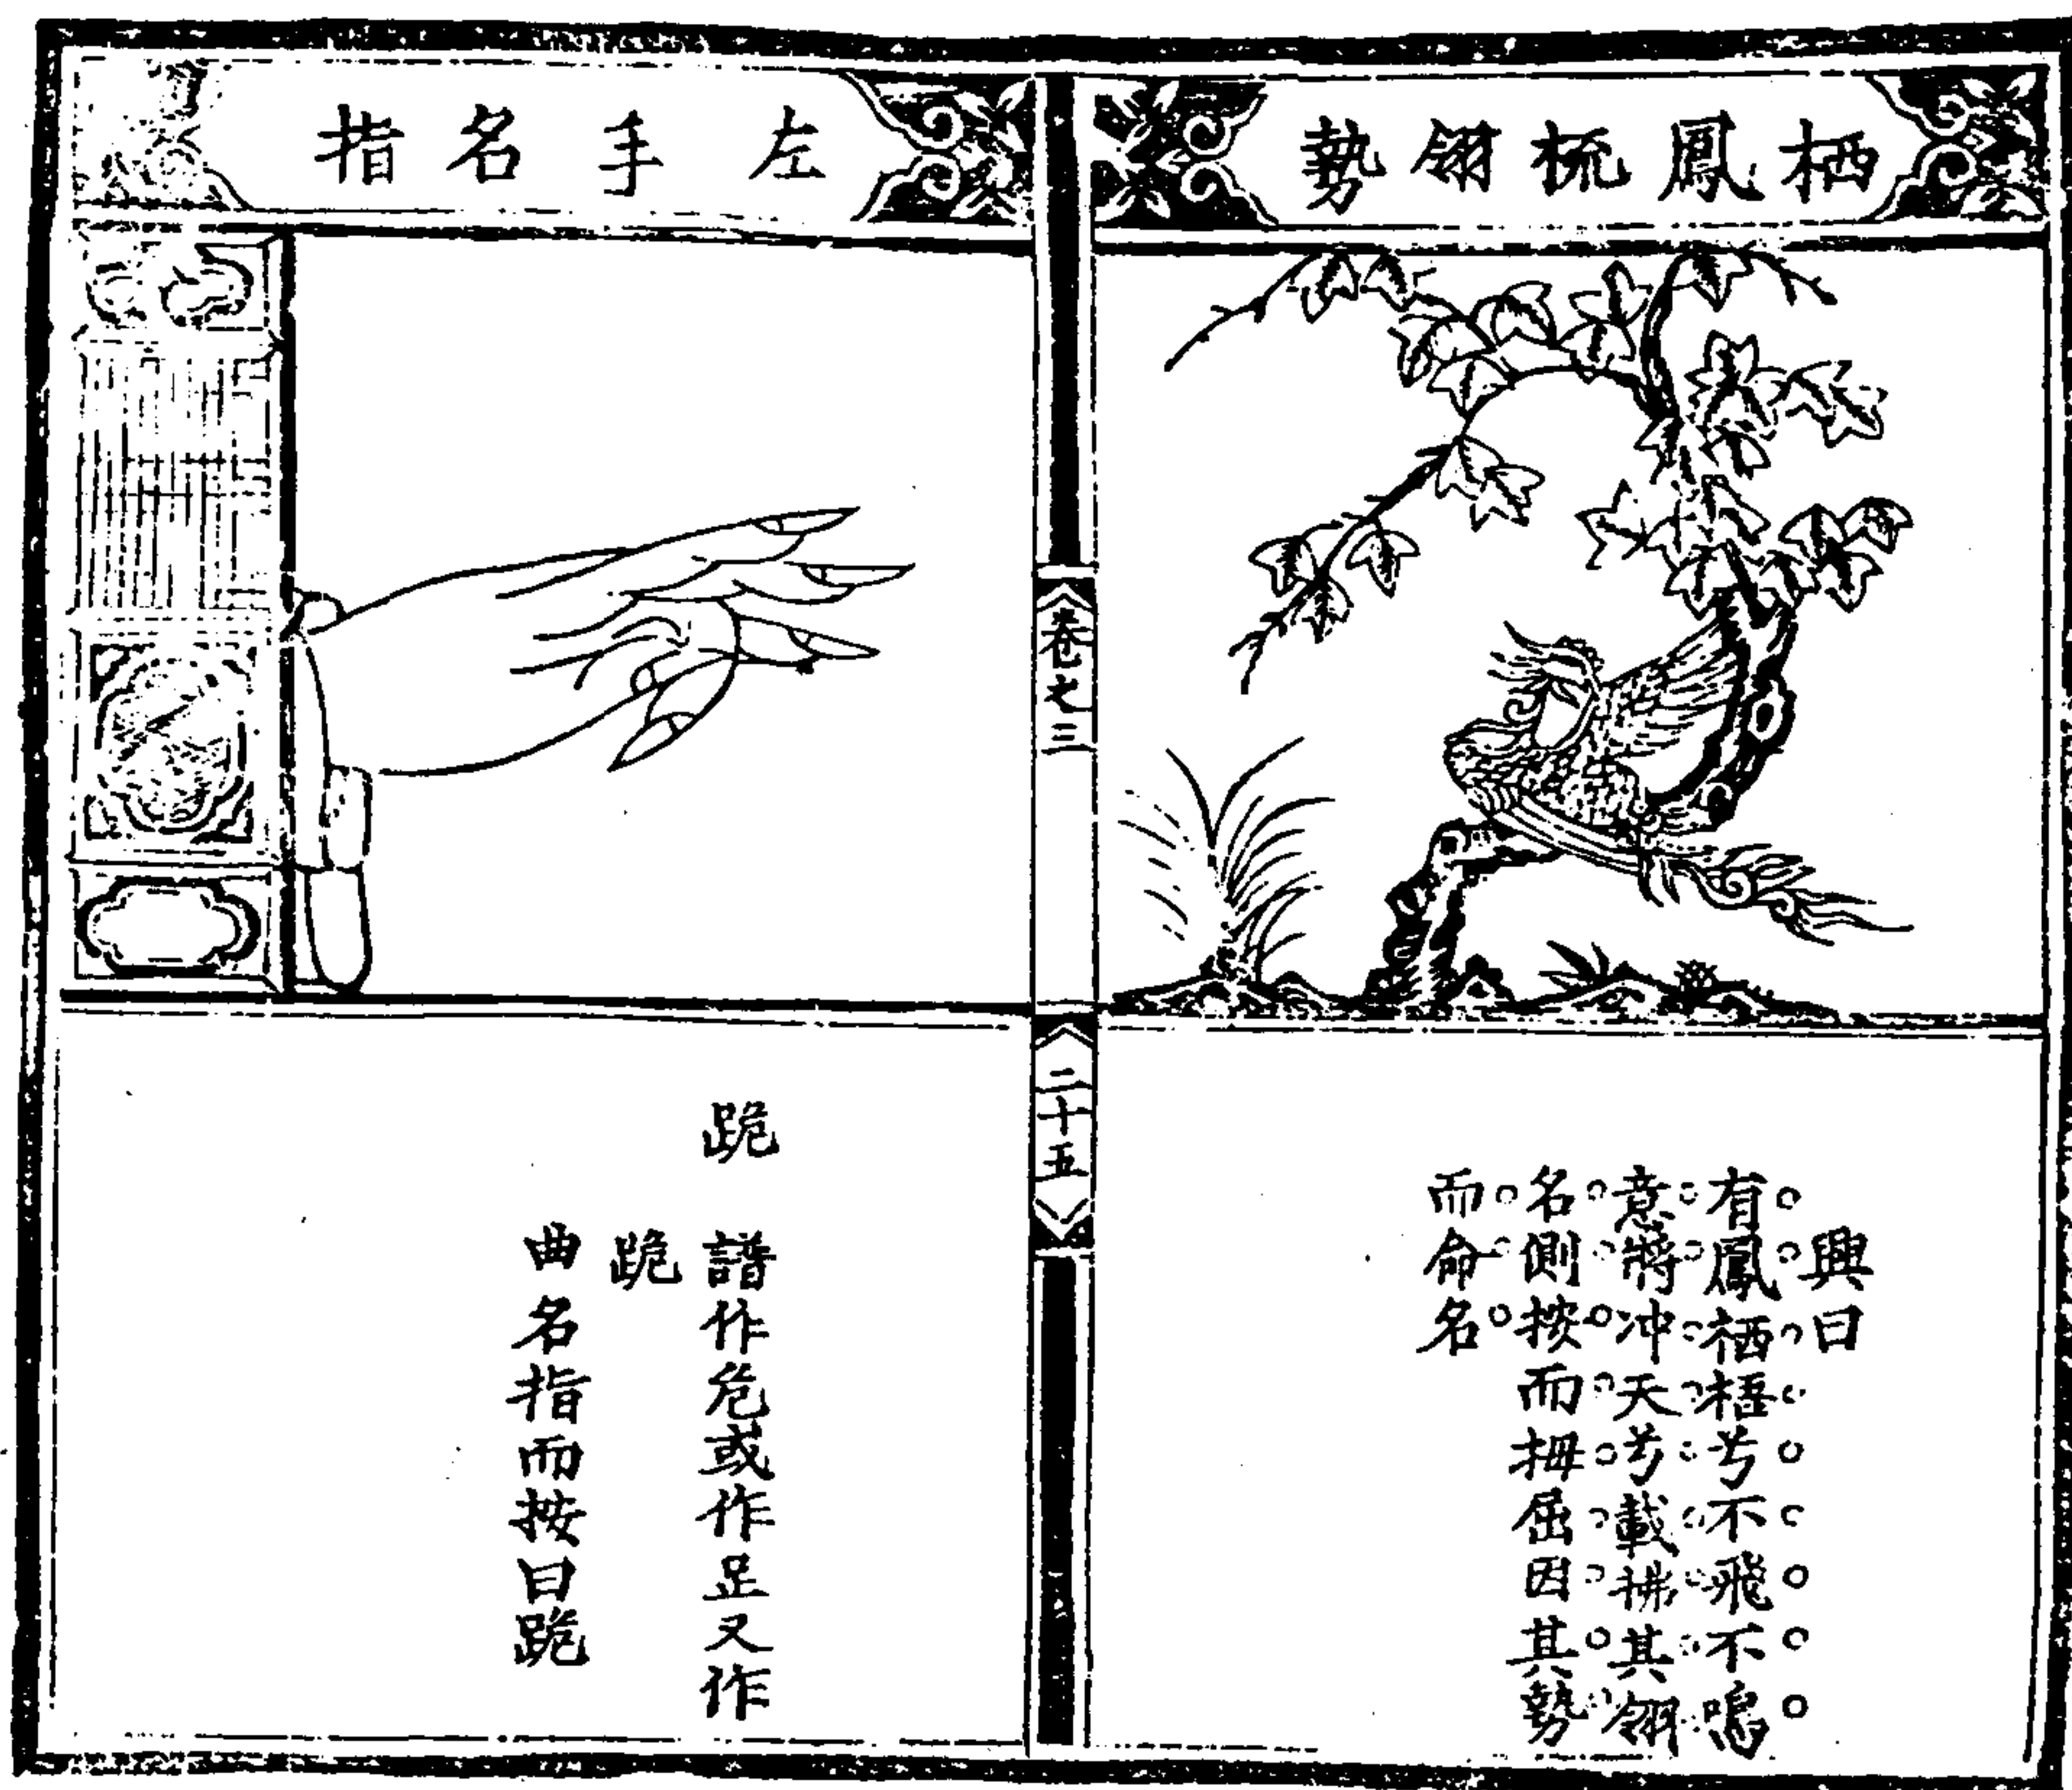 栖鳳梳翎勢
興曰
有鳳栖梧兮不飛不鳴
意將冲天兮載拂其翎
名側按而拇屈因其勢
而命名
卷之三
二十五
左手名指
跪
譜作危或作𧾷又作
跪
曲名指而按曰跪